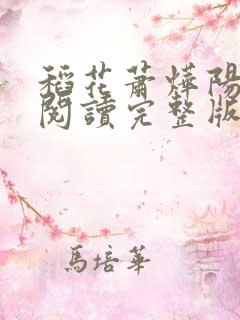 稻花蕭燁陽
閱讀完整版
馬培華